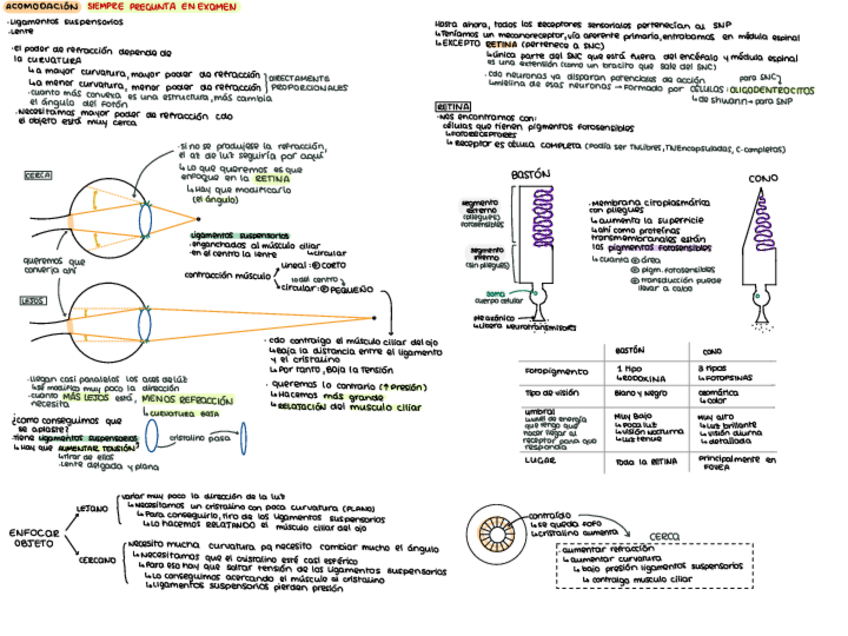 ACOMODACIÓN SIEMPRE PREGUNTA EN EXAMEN
·Ligamentos suspensorios
·Lente
·el poder de refracción depende de
la CURVATURA
↳a mayor curvatura, mayor poder de refracción
↳a menor curvatura, menor poder de refracción
DIRECTAMENTE
PROPORCIONALES
·cuanto más convexa es una estructura, más cambia
el ángulo del fotón
·Necesitamos mayor poder de refracción cdo
el objeto está muy cerca
CERCA
·si no se produjese la refracción,
el az de luz seguiría por aquí
↳Lo que queremos es que
enfoque en la RETINA
↳Hay que modificarlo
(el ángulo)
queremos que
converja ahí
Ligamentos suspensorios
·enganchados al músculo ciliar
·en el centro la lente
↳circular
contracción músculo
lineal: CORTO
circular: PEQUEÑO
LEJOS
·cdo contraigo el músculo ciliar del ojo
↳Baja la distancia entre el ligamento
y el cristalino
↳Por tanto, Baja la tensión
·queremos lo contrario (↑Presión)
↳Hacemos más grande
↳RELAJACIÓN del músculo ciliar
·llegan casi paralelos los aces de luz
↳se modifica muy poco la dirección
·cuanto MÁS LEJOS está, MENOS REFRACCIÓN
necesita
↳CURVATURA BAJA
¿como conseguimos que
se aplaste?
·tiene ligamentos suspensorios
↳Hay que AUMENTAR TENSIÓN
↳tirar de ellos
·Lente delgada y plana
cristalino pasa
ENFOCAR
OBJETO
LEJANO
variar muy poco la dirección de la luz
↳Necesitamos un cristalino con poca curvatura (PLANO)
↳Para conseguirlo, tiro de los ligamentos suspensorios
↳Lo hacemos RELAJANDO el músculo ciliar del ojo
CERCANO
Necesito mucha curvatura pq necesito cambiar mucho el ángulo
↳Necesitamos que el cristalino esté casi esférico
↳Para eso hay que soltar tensión de los ligamentos suspensorios
↳Lo conseguimos acercando el músculo al cristalino
↳Ligamentos suspensorios pierden presión
Hasta ahora, todos los receptores sensoriales pertenecían al SNP
↳Teníamos un mecanoreceptor, vía aferente primario, entrabamos en médula espinal
↳EXCEPTO RETINA (pertenece a SNC)
↳única parte del SNC que está fuera del encéfalo y médula espinal
es una extensión (como un bracito que sale del SNC)
·cdo neuronas ya disparan potenciales de acción
para SNC
↳mielina de esas neuronas → Formado por CÉLULAS: OLIGODENTROCITOS
↳de shwann → para SNP
RETINA
·Nos encontramos con:
células que tienen pigmentos fotosensibles
↳FOTORECEPTORES
↳ Receptor es célula COMPLETA (Podía ser TNlibres, TNEncapsuladas, C.completas)
BASTÓN
CONO
segmento
externo
(pliegues)
fotosensibles
segmento
interno
(sin pliegues)
soma
cuerpo celular
↳Libera neurotransmisores
·Membrana citoplasmática
con pliegues
↳aumenta la superficie
↳ahí como proteínas
transmembranales están
los pigmentos fotosensibles
↳cuanta área
pigm. fotosensibles
transducción puede
llevar a cabo
BASTÓN CONO
Fotopigmento
1 tipo
↳RODOXINA
3 tipos
↳FOTOPSINAS
Tipo de visión
Blanco y Negro
↳color
umbral
↳nivel de energía
que tengo que
hacer llegar al
receptor para que
responda
Muy Bajo
↳Poca luz
↳visión nocturna
↳luz tenue
muy alto
↳Luz brillante
↳visión diurna
↳detallada
LUGAR
Toda la RETINA
Principalmente en
FOVEA
contraído
↳se queda fofo
↳cristalino aumenta
CERCA
aumentar refracción
↳aumentar curvatura
↳bajo presión ligamentos suspensorios
↳contraigo musculo ciliar